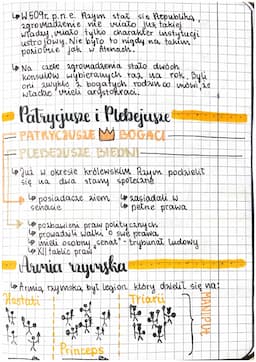 W 509r. p.n.e. Rzym stał się Republiką,
zgromadzenie nie miało już takiej
władzy, miało tylko charakter instytucji
ustrojowej. Nie było to nigdy na takim
poziomie jak w Atenach.
Na czele zgromadzenia stało dwóch
konsulów wybieranych raz na rok. Byli
oni zwykle z bogatych rodzin co mówi, że
władze mieli arystokraci.
Patrycjusze i Plebejusze
PATRYCJUSZE BOGACI
PLEBEJUSZE BIEDNI
Już w okresie królewskim Rzym podzielił
się na dwa stany społeczne
posiadacze ziem
zasiadali w
senacie
pełne prawa
pozbawieni praw politycznych
prowadzili walki o swe prawa
mieli osobny "senat" - trybunat ludowy
XII tablic praw
Armia rzymska
Armią rzymską był legion który dzielił się na:
Hastati
Triarii
MANIPUŁ
Princeps